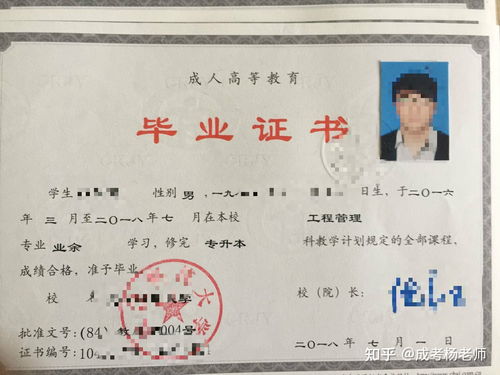 成人高等教育
毕业证书
学生 性别 男 ，一九 日生，于二〇一六
年 三 月至二〇一八年 七 月在本校 工程管理
专业 业余 学习，修完 专升本 科教学计划规定的全部课程，
成绩合格，准予毕业。
校 校（院）长：
批准文号：（84） 004号
证书编号：10
二〇一八 年 七 月 一 日
知乎 @成考杨老师